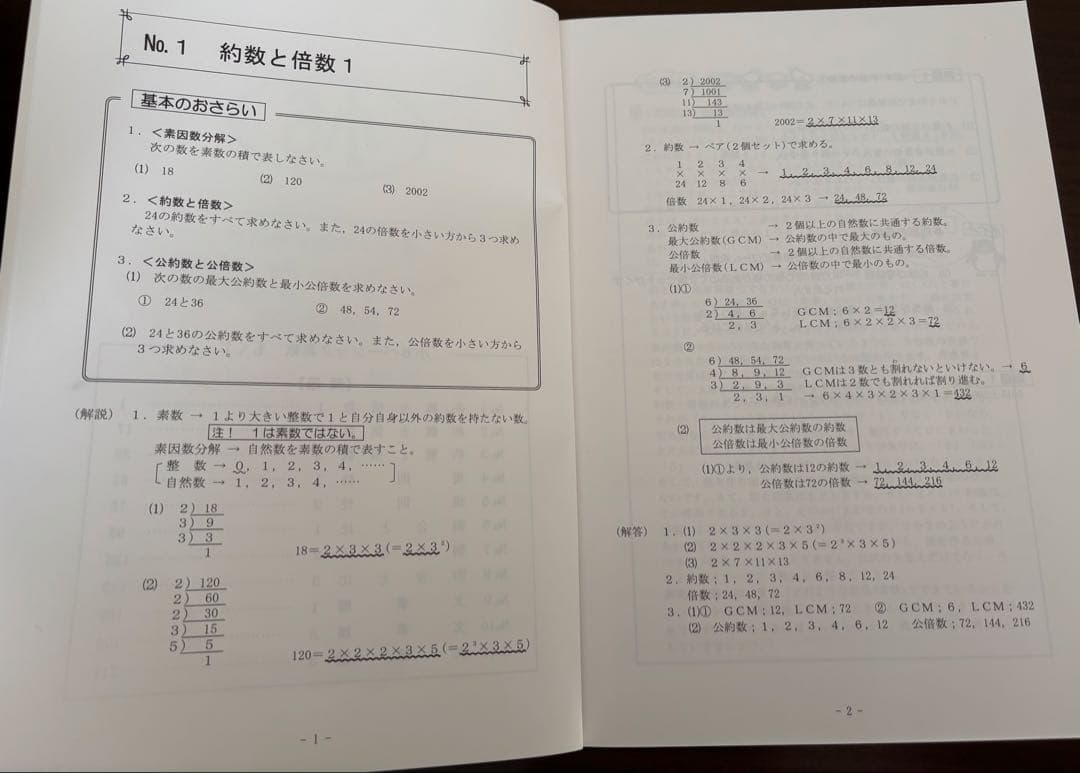 №.1 約数と倍数1
基本のおさらい
1.<素因数分解>
次の数を素数の積で表しなさい。
(1) 18 (2) 120 (3) 2002
2.<約数と倍数>
24の約数をすべて求めなさい。また,24の倍数を小さい方から3つ求め
なさい。
3.<公約数と公倍数>
(1) 次の数の最大公約数と最小公倍数を求めなさい。
① 24と36 ② 48, 54, 72
(2) 24と36の公約数をすべて求めなさい。また,公倍数を小さい方から
3つ求めなさい。
(解説) 1.素数 → 1より大きい整数で1と自分自身以外の約数を持たない数。
注! 1は素数ではない。
素因数分解 → 自然数を素数の積で表すこと。
整 数 → 0, 1, 2, 3, 4, ……
自然数 → 1, 2, 3, 4, ……
(1) 2) 18
3) 9
3) 3
1 18=2×3×3(=2×3²)
(2) 2) 120
2) 60
2) 30
3) 15
5) 5
1 120=2×2×2×3×5(=2³×3×5)
- 1 -
(3) 2) 2002
7) 1001
11) 143
13) 13
1 2002=2×7×11×13
2.約数 → ペア(2個セット)で求める。
1 2 3 4
× × × × → 1, 2, 3, 4, 6, 8, 12, 24
24 12 8 6
倍数 24×1, 24×2, 24×3 → 24, 48, 72
3.公約数 → 2個以上の自然数に共通する約数。
最大公約数(GCM) → 公約数の中で最大のもの。
公倍数 → 2個以上の自然数に共通する倍数。
最小公倍数(LCM) → 公倍数の中で最小のもの。
(1)①
6) 24, 36
2) 4, 6 GCM;6×2=12
2, 3 LCM;6×2×2×3=72
②
6) 48, 54, 72
4) 8, 9, 12 GCMは3数とも割れないといけない。→ 6
3) 2, 9, 3 LCMは2数でも割れれば割り進む。
2, 3, 1 → 6×4×3×2×3×1=432
(2) 公約数は最大公約数の約数
公倍数は最小公倍数の倍数
(1)①より,公約数は12の約数 → 1, 2, 3, 4, 6, 12
公倍数は72の倍数 → 72, 144, 216
(解答) 1.(1) 2×3×3(=2×3²)
(2) 2×2×2×3×5(=2³×3×5)
(3) 2×7×11×13
2.約数;1, 2, 3, 4, 6, 8, 12, 24
倍数;24, 48, 72
3.(1)① GCM;12, LCM;72 ② GCM;6, LCM;432
(2) 公約数;1, 2, 3, 4, 6, 12 公倍数;72, 144, 216
- 2 -